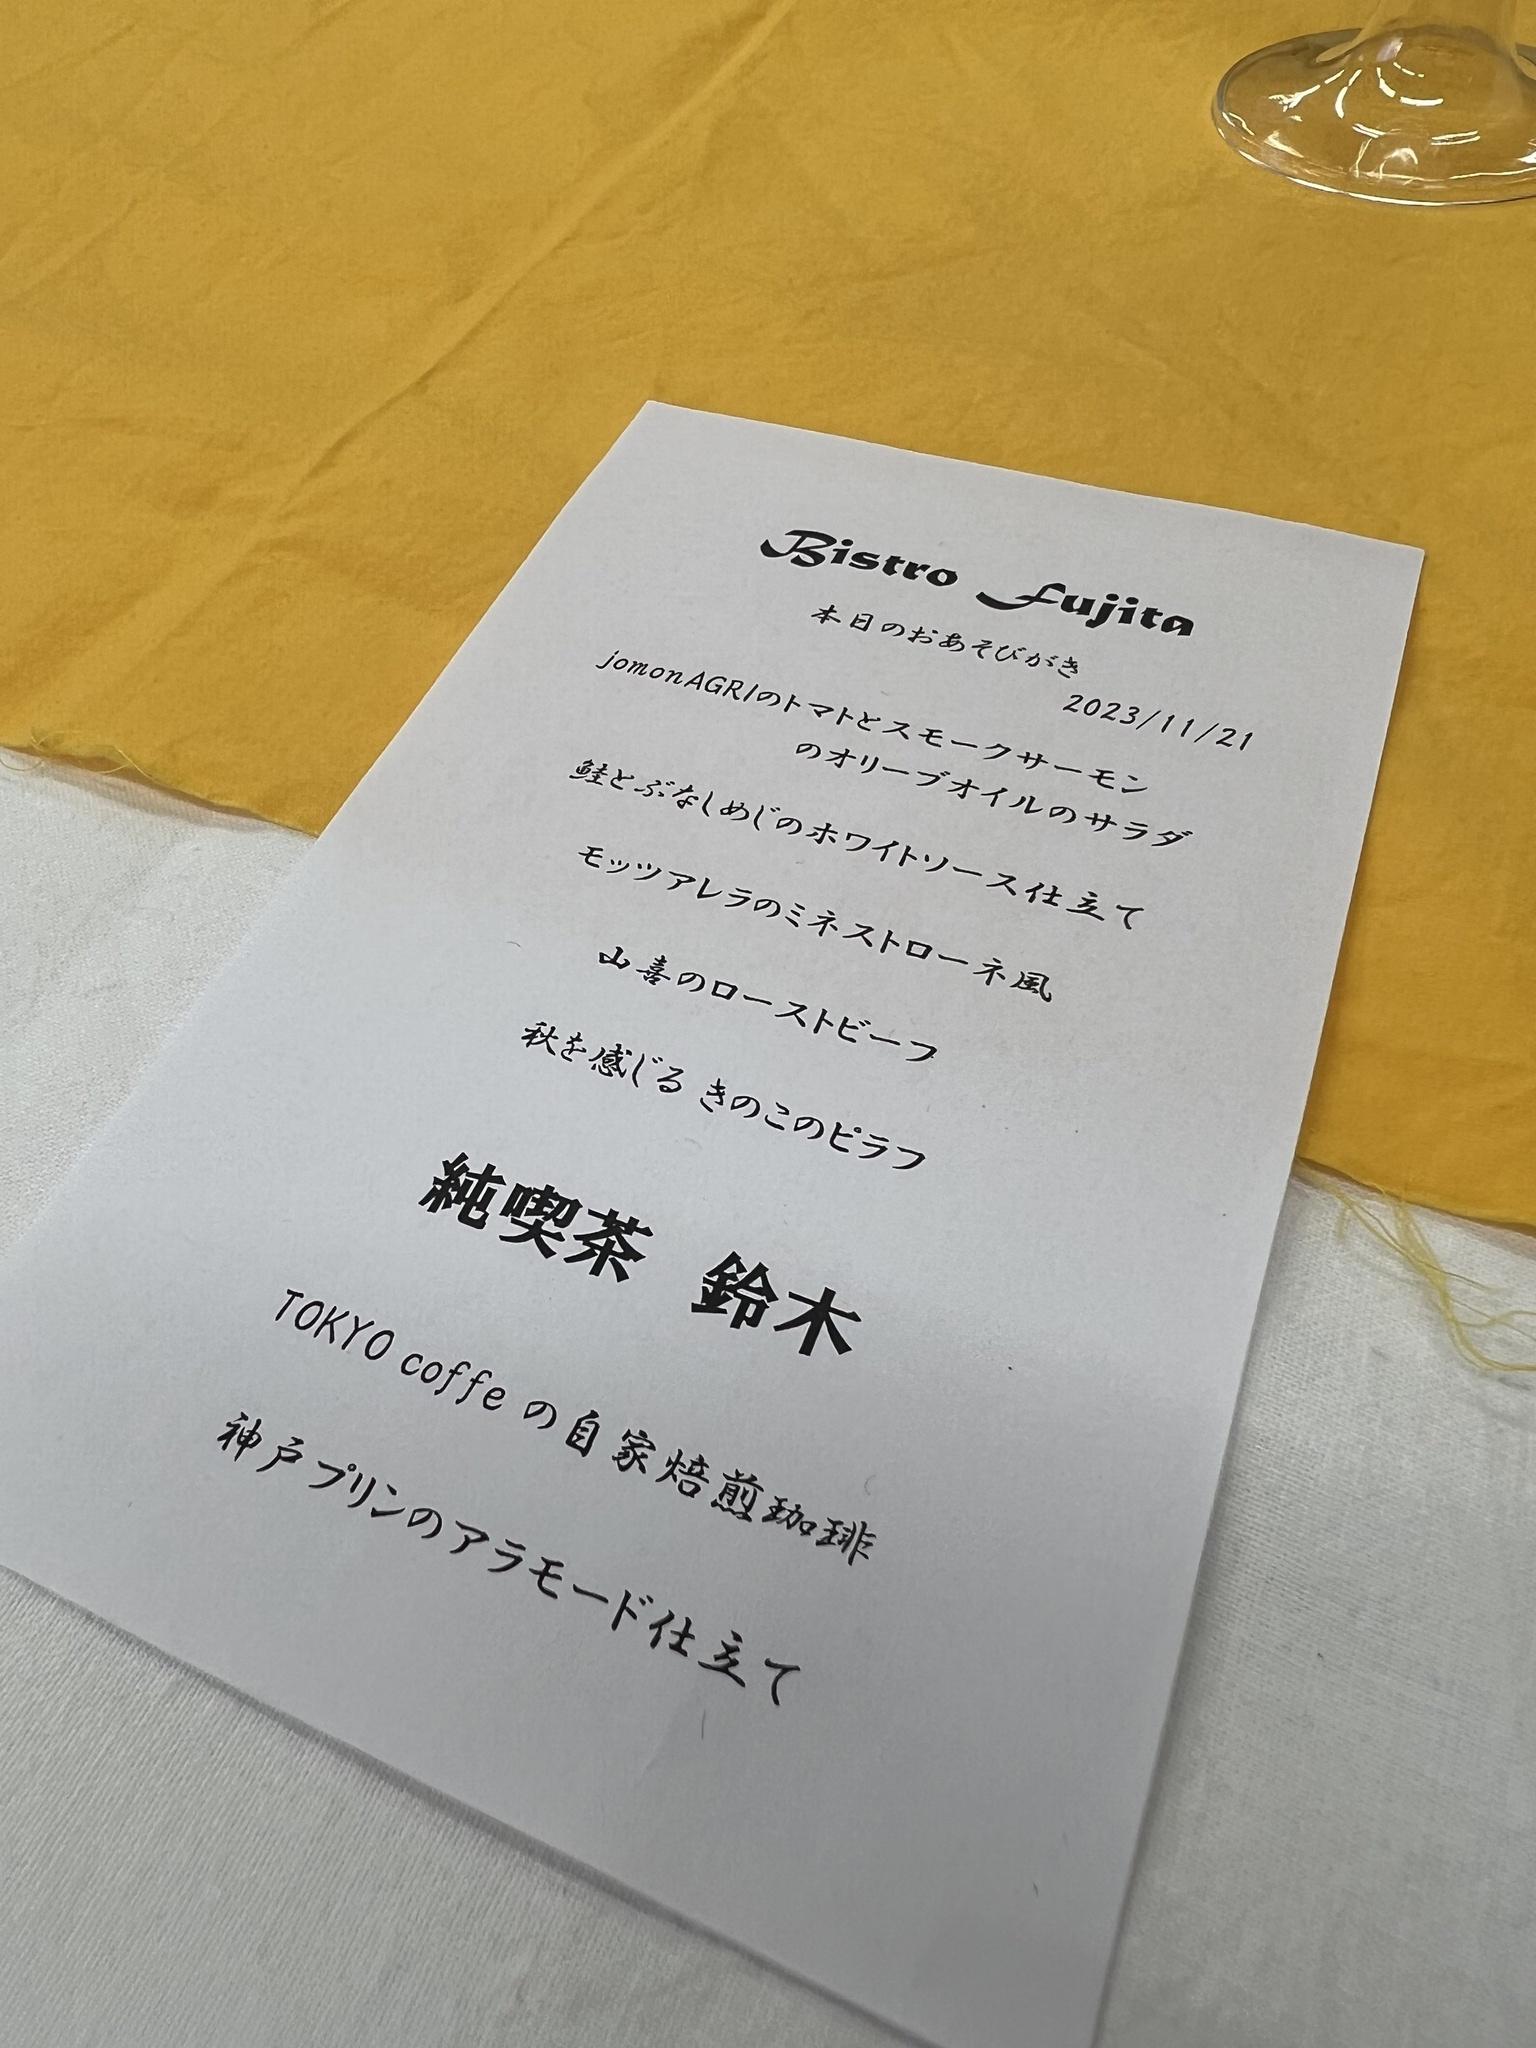 Bistro Fujita
本日のおあそびがき
2023/11/21
jomonAGRIのトマトとスモークサーモン
のオリーブオイルのサラダ
鮭とぶなしめじのホワイトソース仕立て
モッツアレラのミネストローネ風
山喜のローストビーフ
秋を感じる きのこのピラフ
純喫茶 鈴木
TOKYO coffe の自家焙煎珈琲
神戸プリンのアラモード仕立て